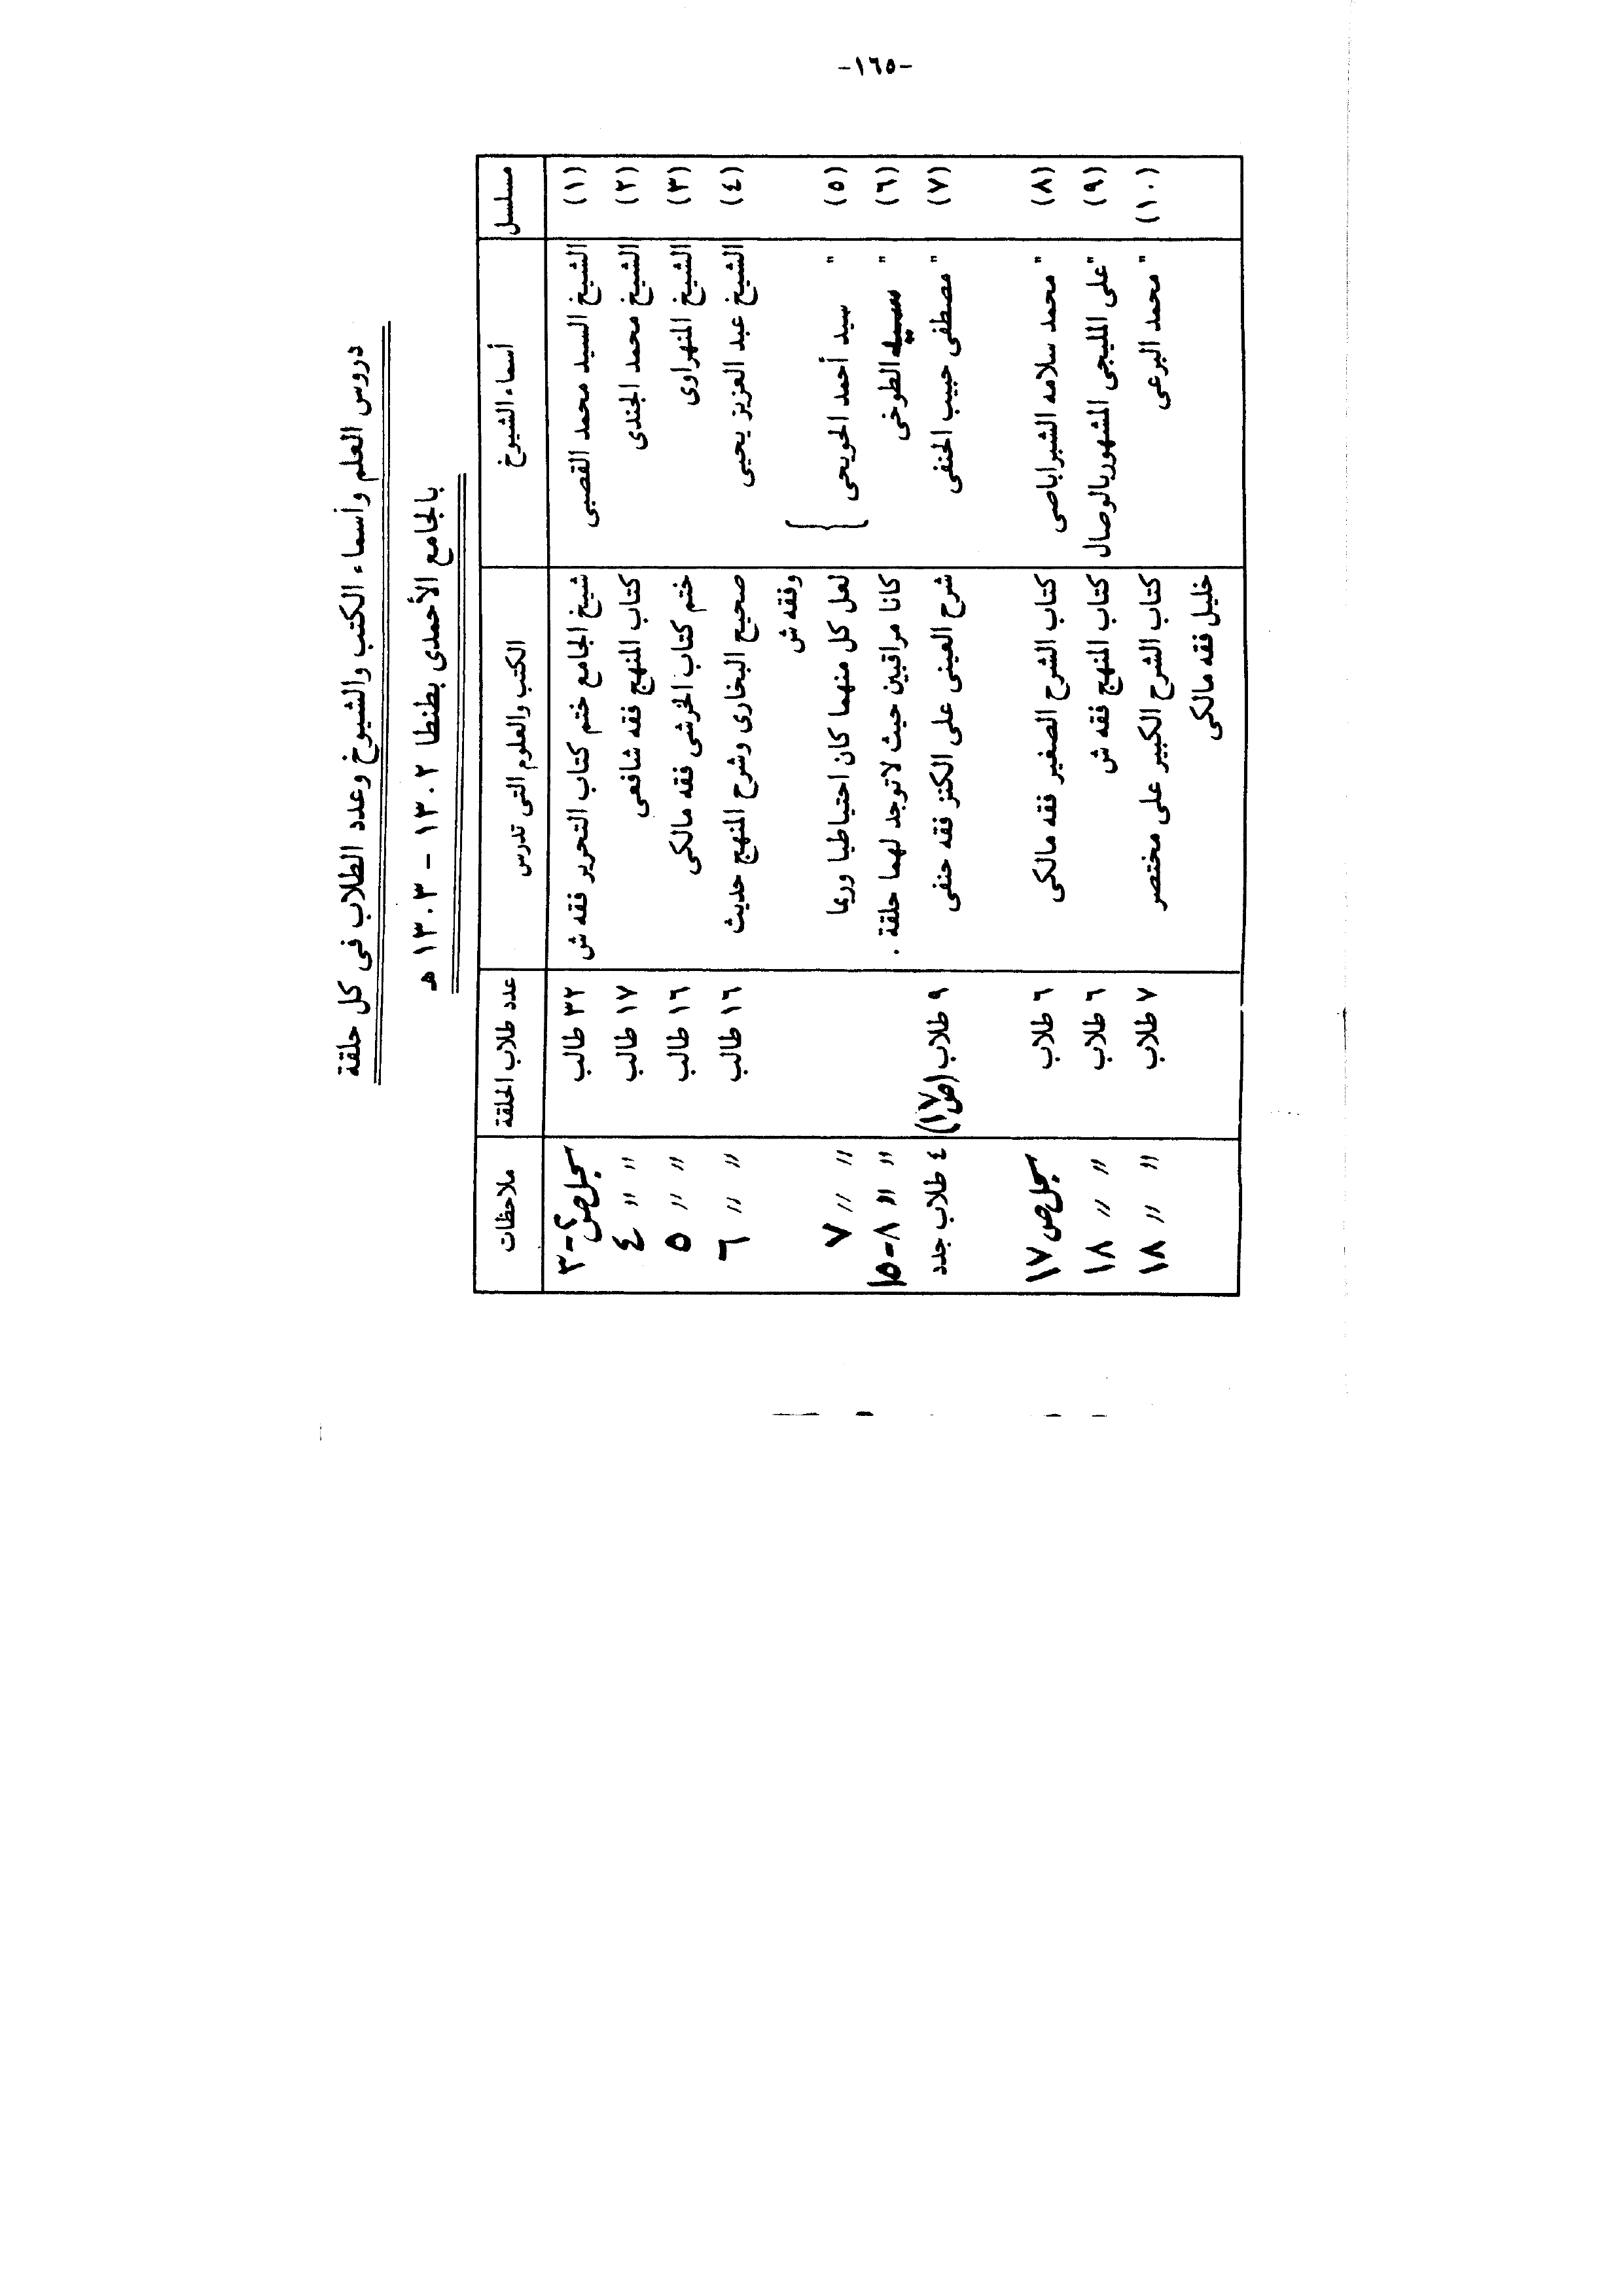 -١٦٥-
دروس العلم وأسماء الكتب والشيوخ وعدد الطلاب فى كل حلقة
بالجامع الأحمدى بطنطا ١٣٠٢ - ١٣٠٣ هـ
مسلسل أسماء الشيوخ الكتب والعلوم التى تدرس عدد طلاب الحلقة ملاحظات
(١) الشيخ السيد محمد القصبى شيخ الجامع ختم كتاب التحرير فقه ش ٣٢ طالب سجل ص ٢-٣
(٢) الشيخ محمد الجندى كتاب المنهج فقه شافعى ١٧ طالب " " ٤
(٣) الشيخ المنهراوى ختم كتاب الخرشى فقه مالكى ١٦ طالب " " ٥
(٤) الشيخ عبد العزيز يحيى صحيح البخارى وشرح المنهج حديث ١٦ طالب " " ٦
وفقه ش
(٥) " سيد أحمد الحويحى لعل كل منهما كان احتياطيا وربما " " ٧
(٦) " سيد الطوخى كانا مراقبين حيث لاتوجد لهما حلقة . " " ٨-١٥
(٧) " مصطفى حبيب الحنفى شرح العينى على الكنز فقه حنفى ٩ طلاب (ص١٧) ٤ طلاب جدد
(٨) " محمد سلامه الشبراباصى كتاب الشرح الصغير فقه مالكى ٦ طلاب سجل ص ١٧
(٩) " على المليجى المشهور بالوصال كتاب المنهج فقه ش ٦ طلاب " " ١٨
(١٠) " محمد البرعى كتاب الشرح الكبير على مختصر ٧ طلاب " " ١٨
خليل فقه مالكى